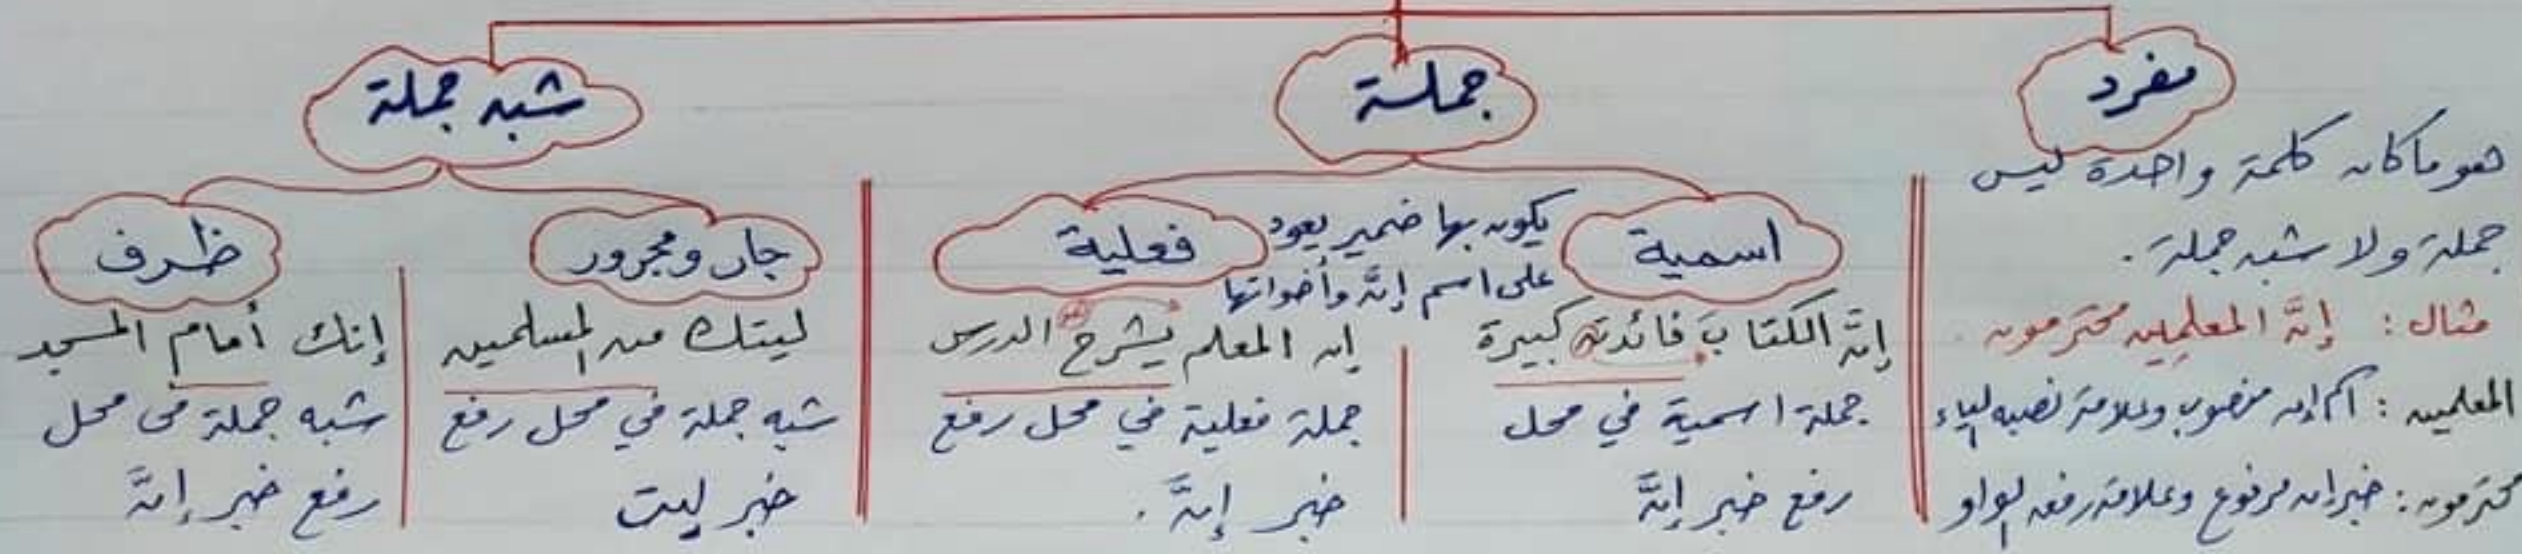 مفرد
هو ما كان كلمة واحدة ليس
جملة ولا شبه جملة.
مثال: إنَّ المعلمين محترمون
المعلمين: اسم إن منصوب وعلامة نصبه الياء
محترمون: خبر إن مرفوع وعلامة رفعه الواو
جملة
يكون بها ضمير يعود
على اسم إنَّ وأخواتها
اسمية
إنَّ الكتابَ فائدته كبيرة
جملة اسمية في محل
رفع خبر إنَّ
فعلية
هو
إن المعلم يشرح الدرس
جملة فعلية في محل رفع
خبر إنَّ.
شبه جملة
جار ومجرور
ليتك من المسلمين
شبه جملة في محل رفع
خبر ليت
ظرف
إنك أمام المسجد
شبه جملة في محل
رفع خبر إنَّ